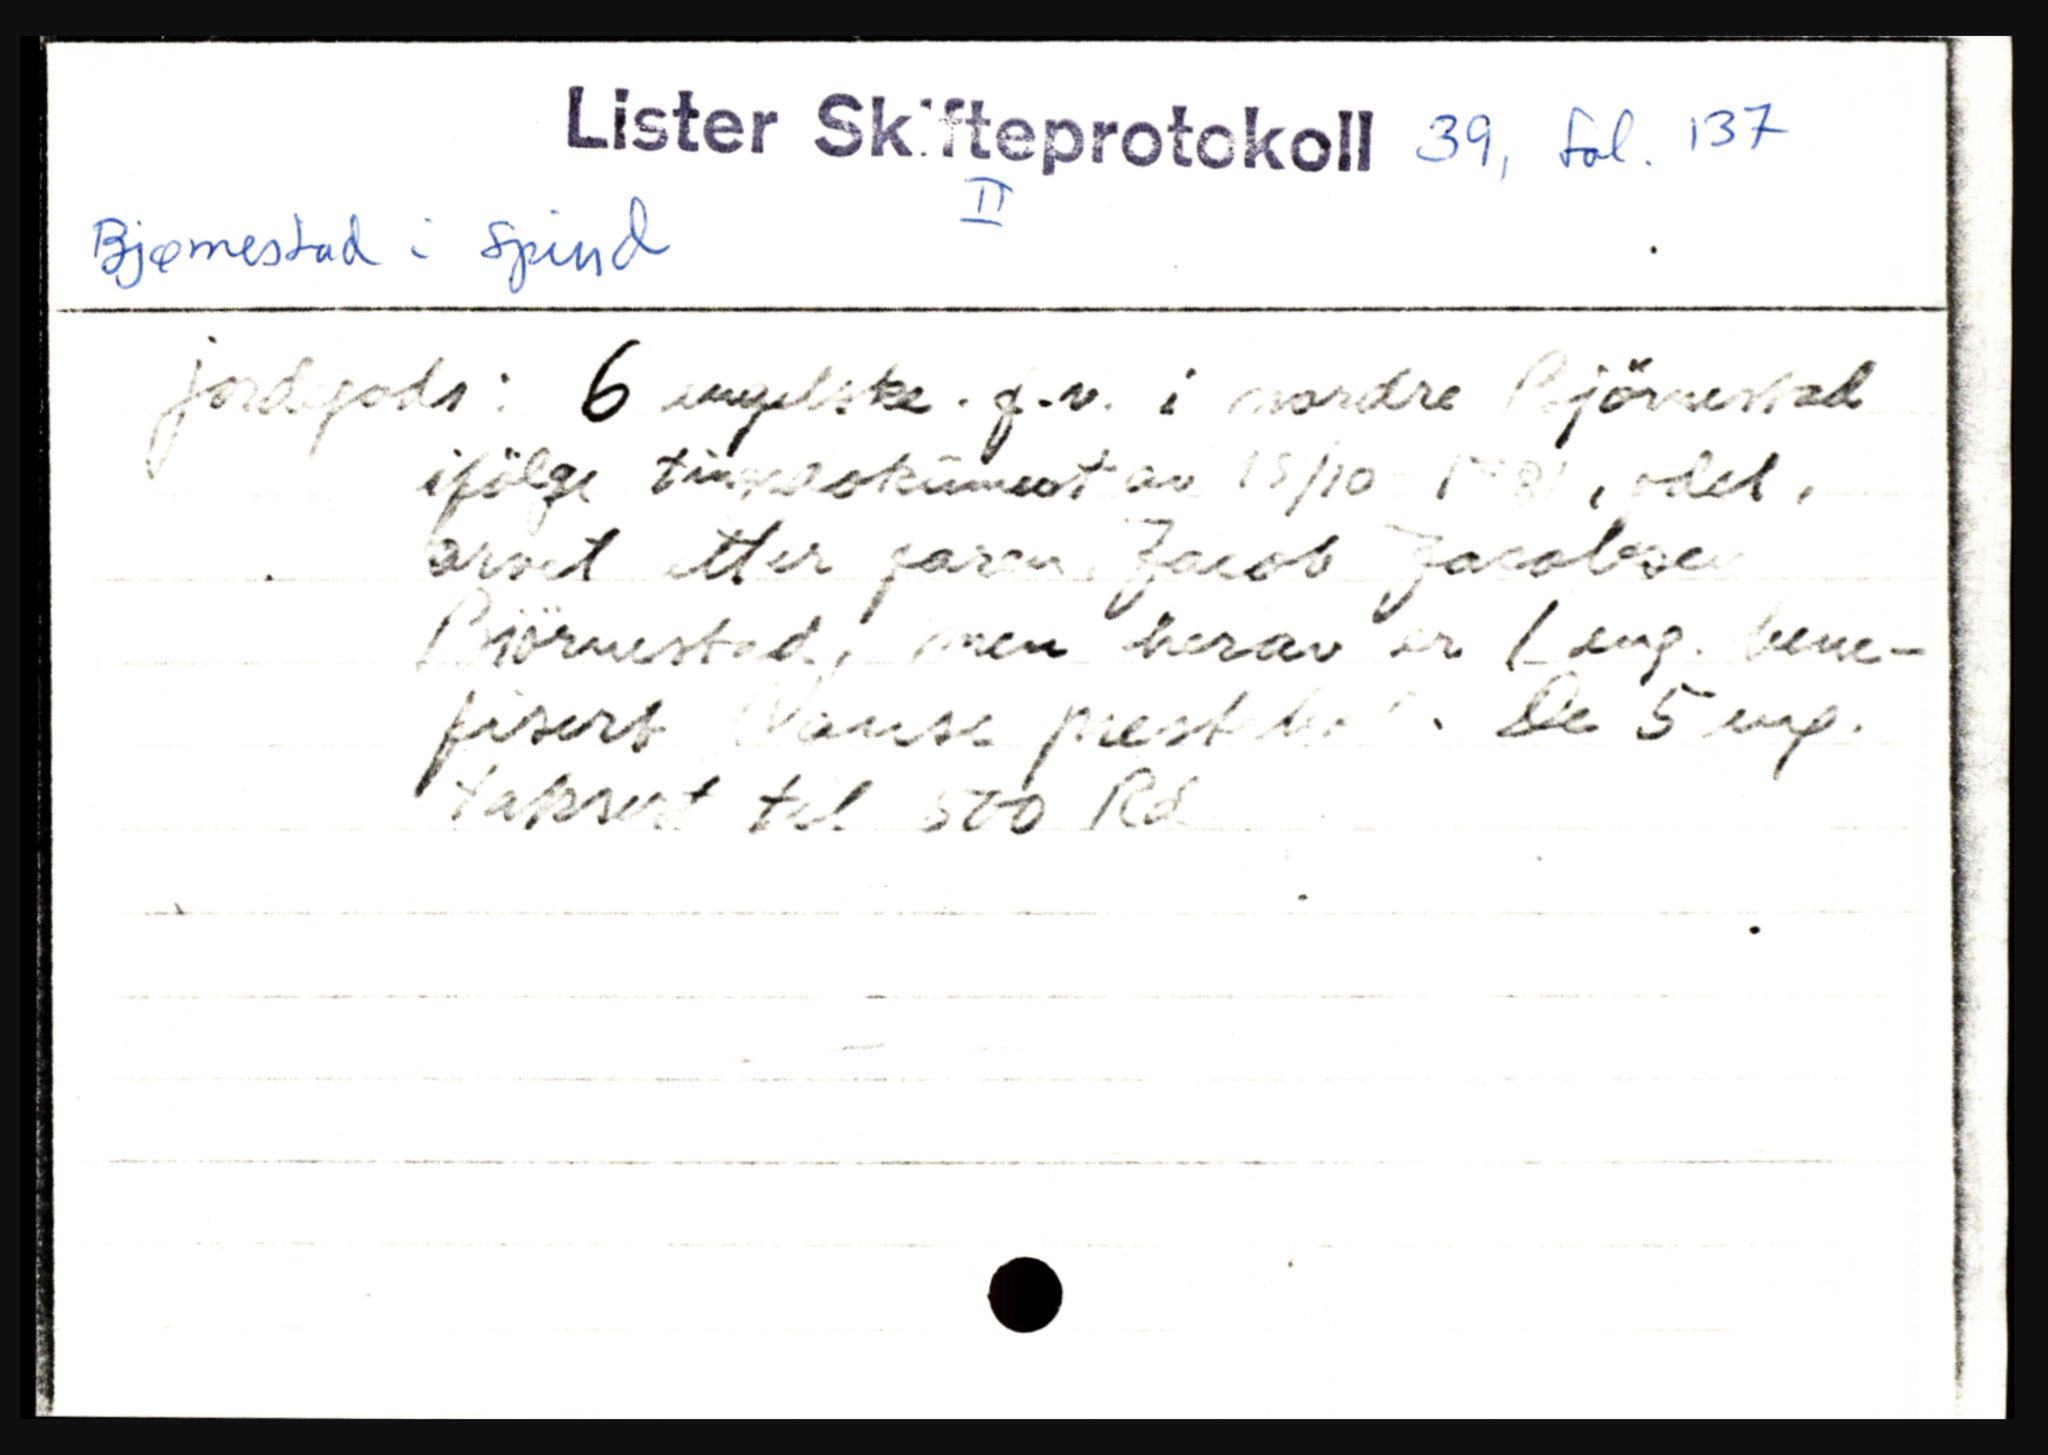 Lister Skifteprotokoll 39, fol. 137
II
Bjørnestad i Spind
jordegods: 6 engelske g.v. i nordre Bjørnestad
ifölge tingsdokument av 15/10 1781, odel,
arvet etter faren, Jacob Jacobsen
Björnestad, men herav er 1 eng. bene-
fisert Vanse prestebol. De 5 eng.
taksert til 500 Rd